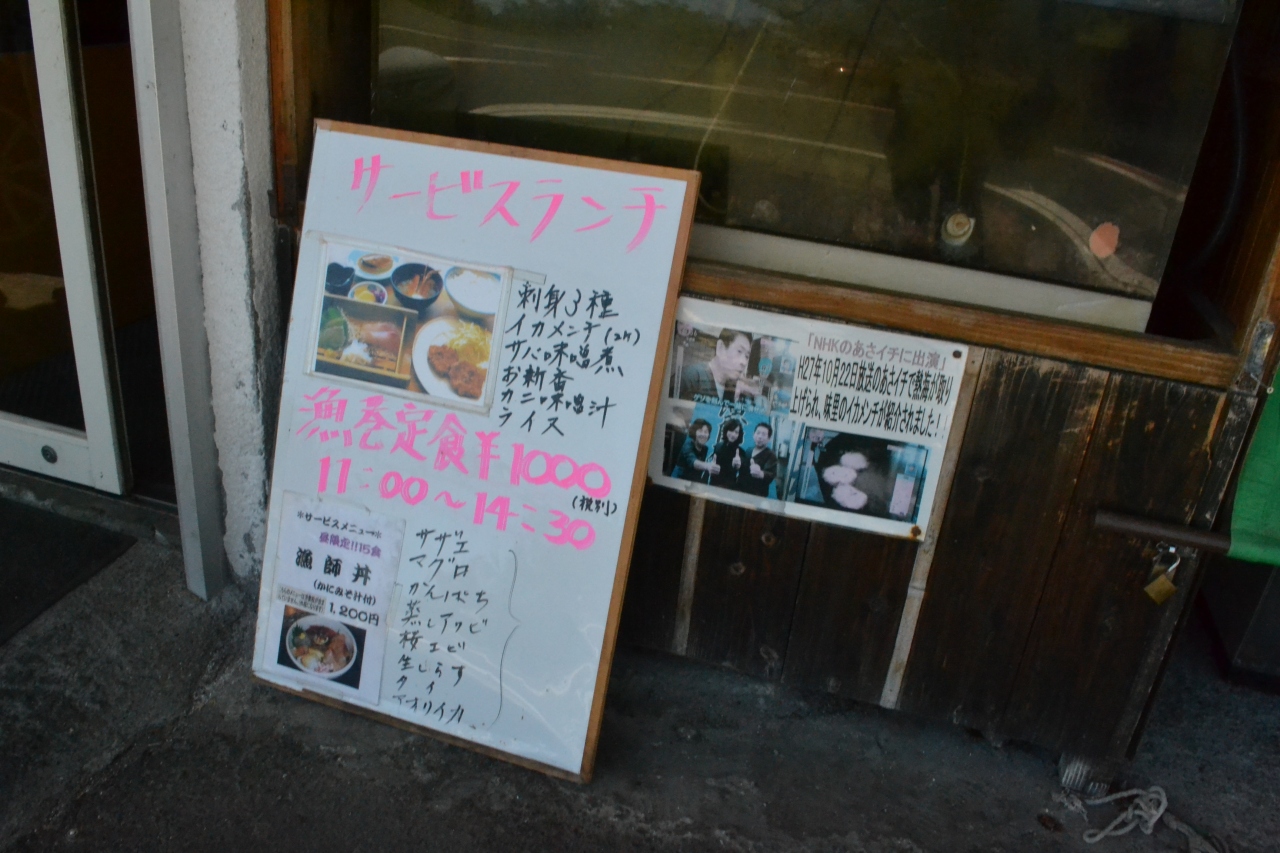 サービスランチ
刺身3種
イカメンチ(2ケ)
サバ味噌煮
お新香
カニ味噌汁
ライス
漁巻定食¥1000
(税別)
11:00〜14:30
*サービスメニュー*
昼限定!!15食
漁師丼
(かにみそ汁付)
1,200円
サザエ
マグロ
かんぱち
蒸しアワビ
桜エビ
生しらす
タイ
アオリイカ
「NHKのあさイチに出演」
H27年10月22日放送のあさイチで熱海が取り
上げられ、味里のイカメンチが紹介されました!